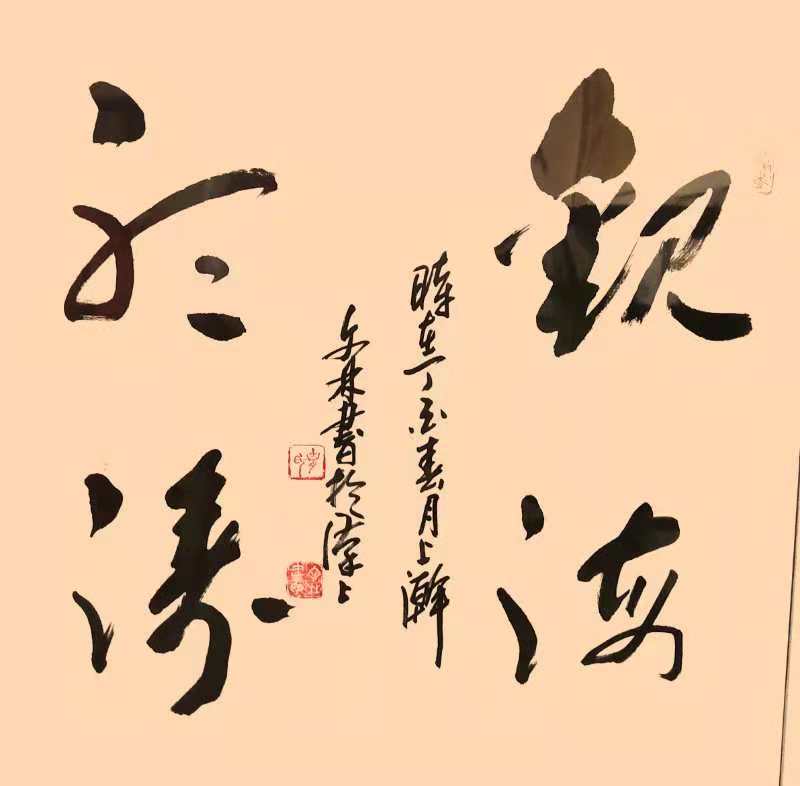 觀海
聽濤
時在丁酉春月上澣
文林書於漢上